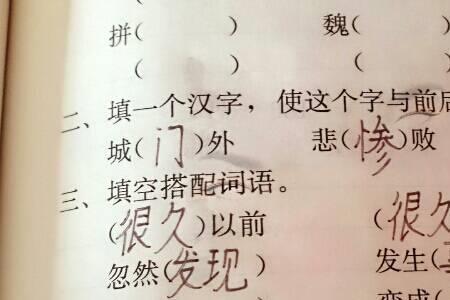 拼( ) 魏( )
( ) (
二、填一个汉字，使这个字与前后
城(门)外 悲(惨)败
三、填空搭配词语。
(很久)以前 (很久
忽然(发现) 发生(
变成(